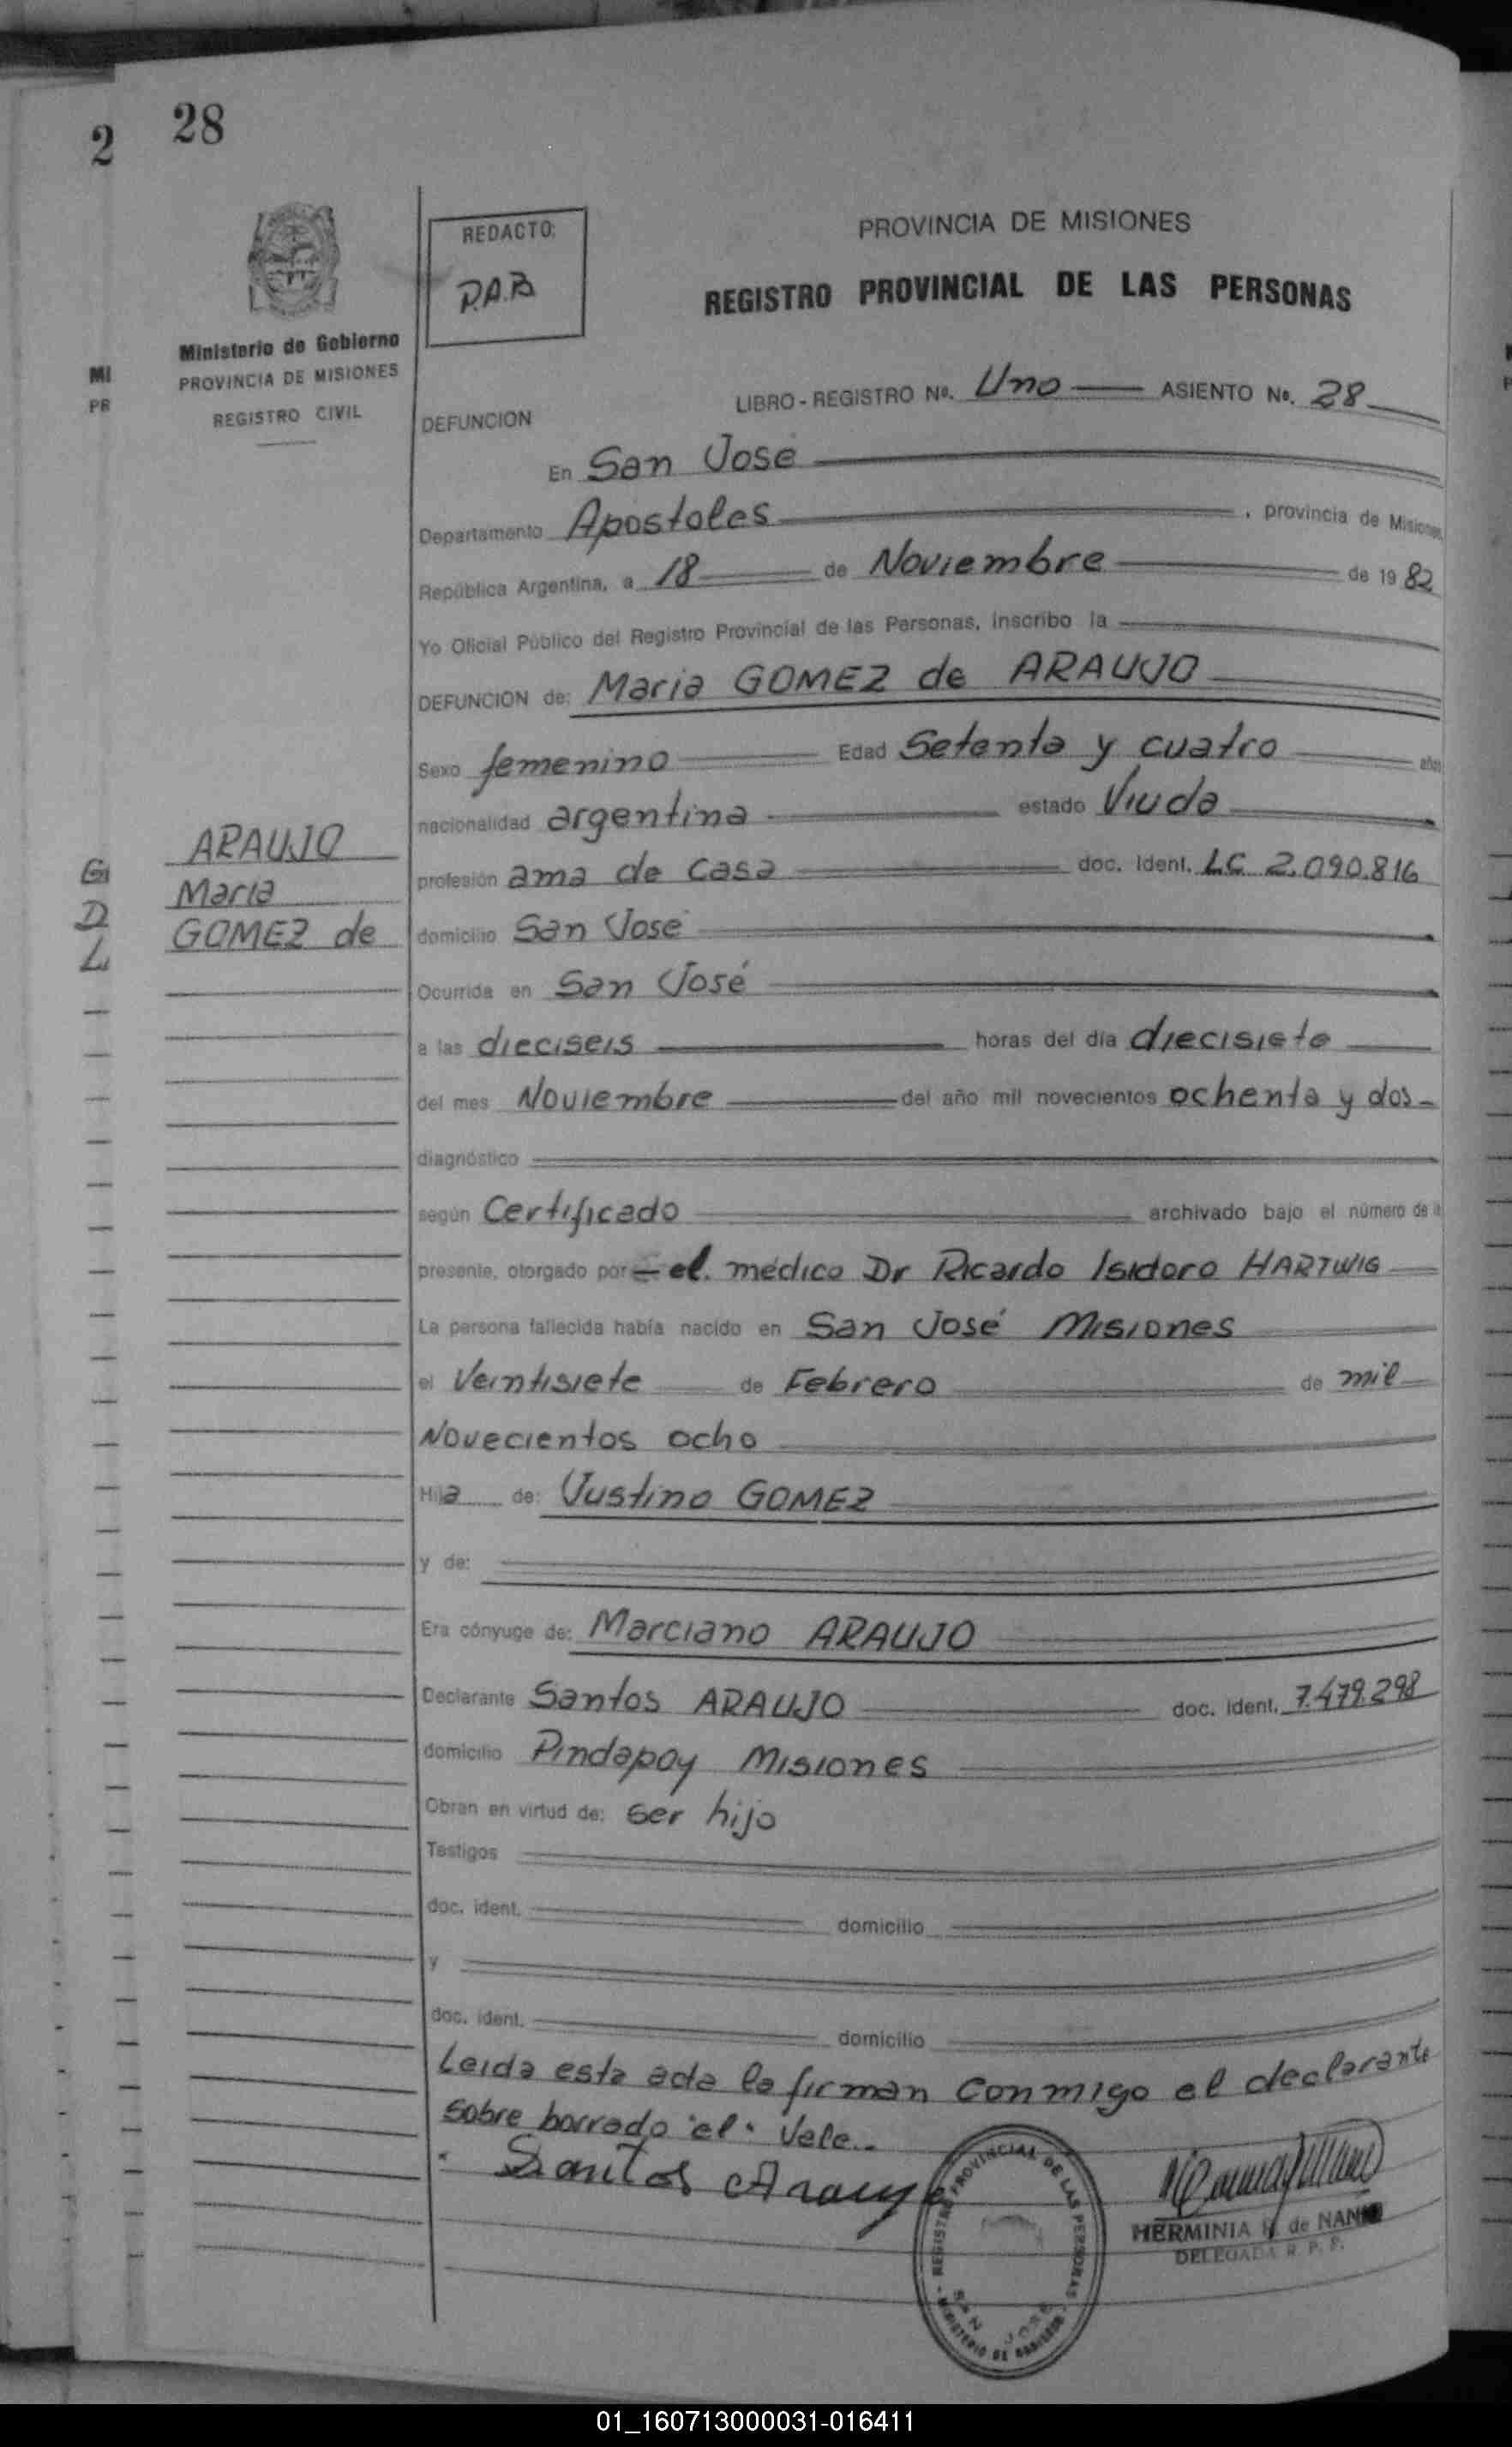 2 28
REDACTO:
P.A.B
PROVINCIA DE MISIONES
REGISTRO PROVINCIAL DE LAS PERSONAS
Ministerio de Gobierno
PROVINCIA DE MISIONES
REGISTRO CIVIL
MI
PR
LIBRO - REGISTRO Nº. Uno ASIENTO Nº. 28
DEFUNCION
En San Jose
Departamento Apostoles, provincia de Misiones,
República Argentina, a 18 de Noviembre de 1982
Yo Oficial Público del Registro Provincial de las Personas, inscribo la
DEFUNCION de: Maria GOMEZ de ARAUJO
Sexo femenino Edad Setenta y cuatro años
nacionalidad argentina estado Viuda
ARAUJO
Maria
GOMEZ de
G
D
L
profesión ama de casa doc. Ident. LC 2.090.816
domicilio San Jose
Ocurrida en San José
a las dieciseis horas del día diecisiete
del mes Noviembre del año mil novecientos ochenta y dos
diagnóstico
según Certificado archivado bajo el número de la
presente, otorgado por el médico Dr Ricardo Isidoro HARTWIG
La persona fallecida había nacido en San José Misiones
el Veintisiete de Febrero de mil
Novecientos ocho
Hija de: Justino GOMEZ
y de:
Era cónyuge de: Marciano ARAUJO
Declarante Santos ARAUJO doc. ident. 7.479.298
domicilio Pindapoy Misiones
Obran en virtud de: ser hijo
Testigos
doc. ident. domicilio
y
doc. ident. domicilio
Leida esta acta la firman conmigo el declarante
sobre borrado "el" Vale.-
Santos Araujo
REGISTRO PROVINCIAL DE LAS PERSONAS
SAN JOSE
MINISTERIO DE GOBIERNO
HERMINIA de NAN
DELEGADA R. P. P.
01_160713000031-016411